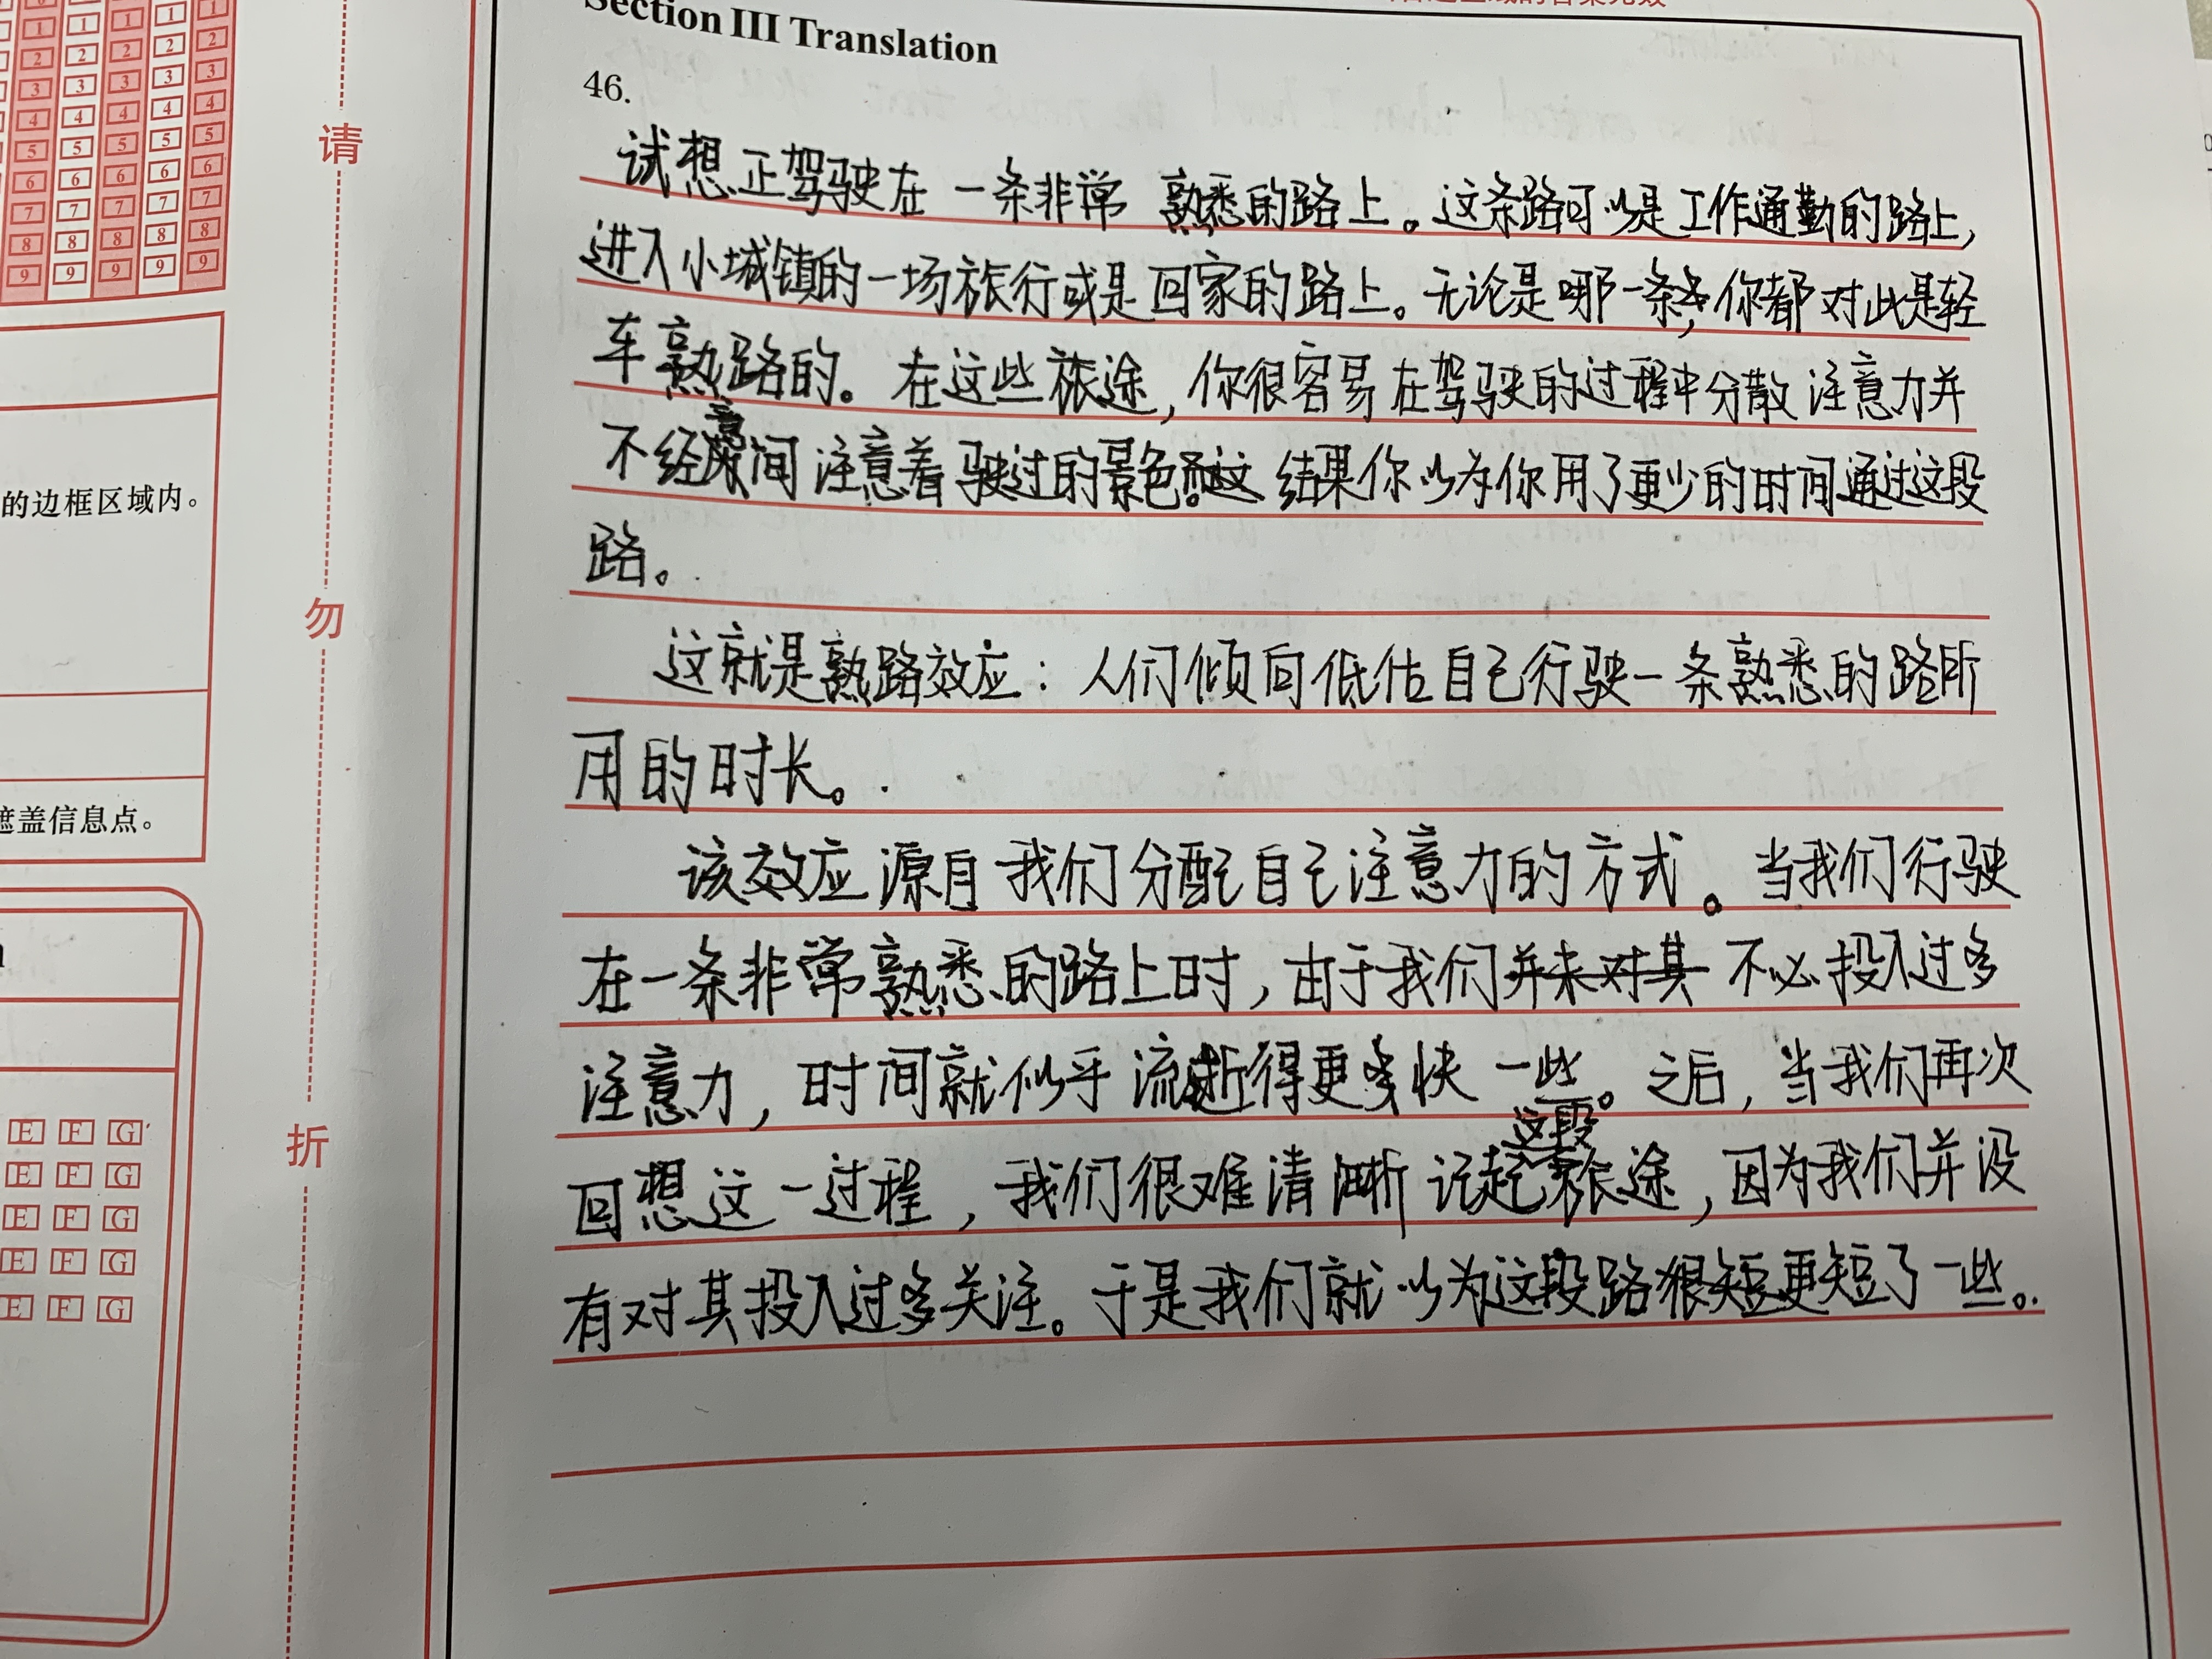 Section III Translation
46.
试想正驾驶在一条非常熟悉的路上。这条路可以是工作通勤的路上,
进入小城镇的一场旅行或是回家的路上。无论是哪一条,你都对此是轻
车熟路的。在这些旅途,你很容易在驾驶的过程中分散注意力并
不经意间注意着驶过的景色。结果你以为你用了更少的时间通过这段
路。
这就是熟路效应:人们倾向低估自己行驶一条熟悉的路所
用的时长。
该效应源自我们分配自己注意力的方式。当我们行驶
在一条非常熟悉的路上时,由于我们不必投入过多
注意力,时间就似乎流逝得更快一些。之后,当我们再次
回想这一过程,我们很难清晰记起这段旅途,因为我们并没
有对其投入过多关注。于是我们就以为这段路更短了一些。
请
勿
折
的边框区域内。
遮盖信息点。
1 1 1 1
2 2 2 2
3 3 3 3
4 4 4 4
5 5 5 5
6 6 6 6
7 7 7 7
8 8 8 8
9 9 9 9
E F G
E F G
E F G
E F G
E F G